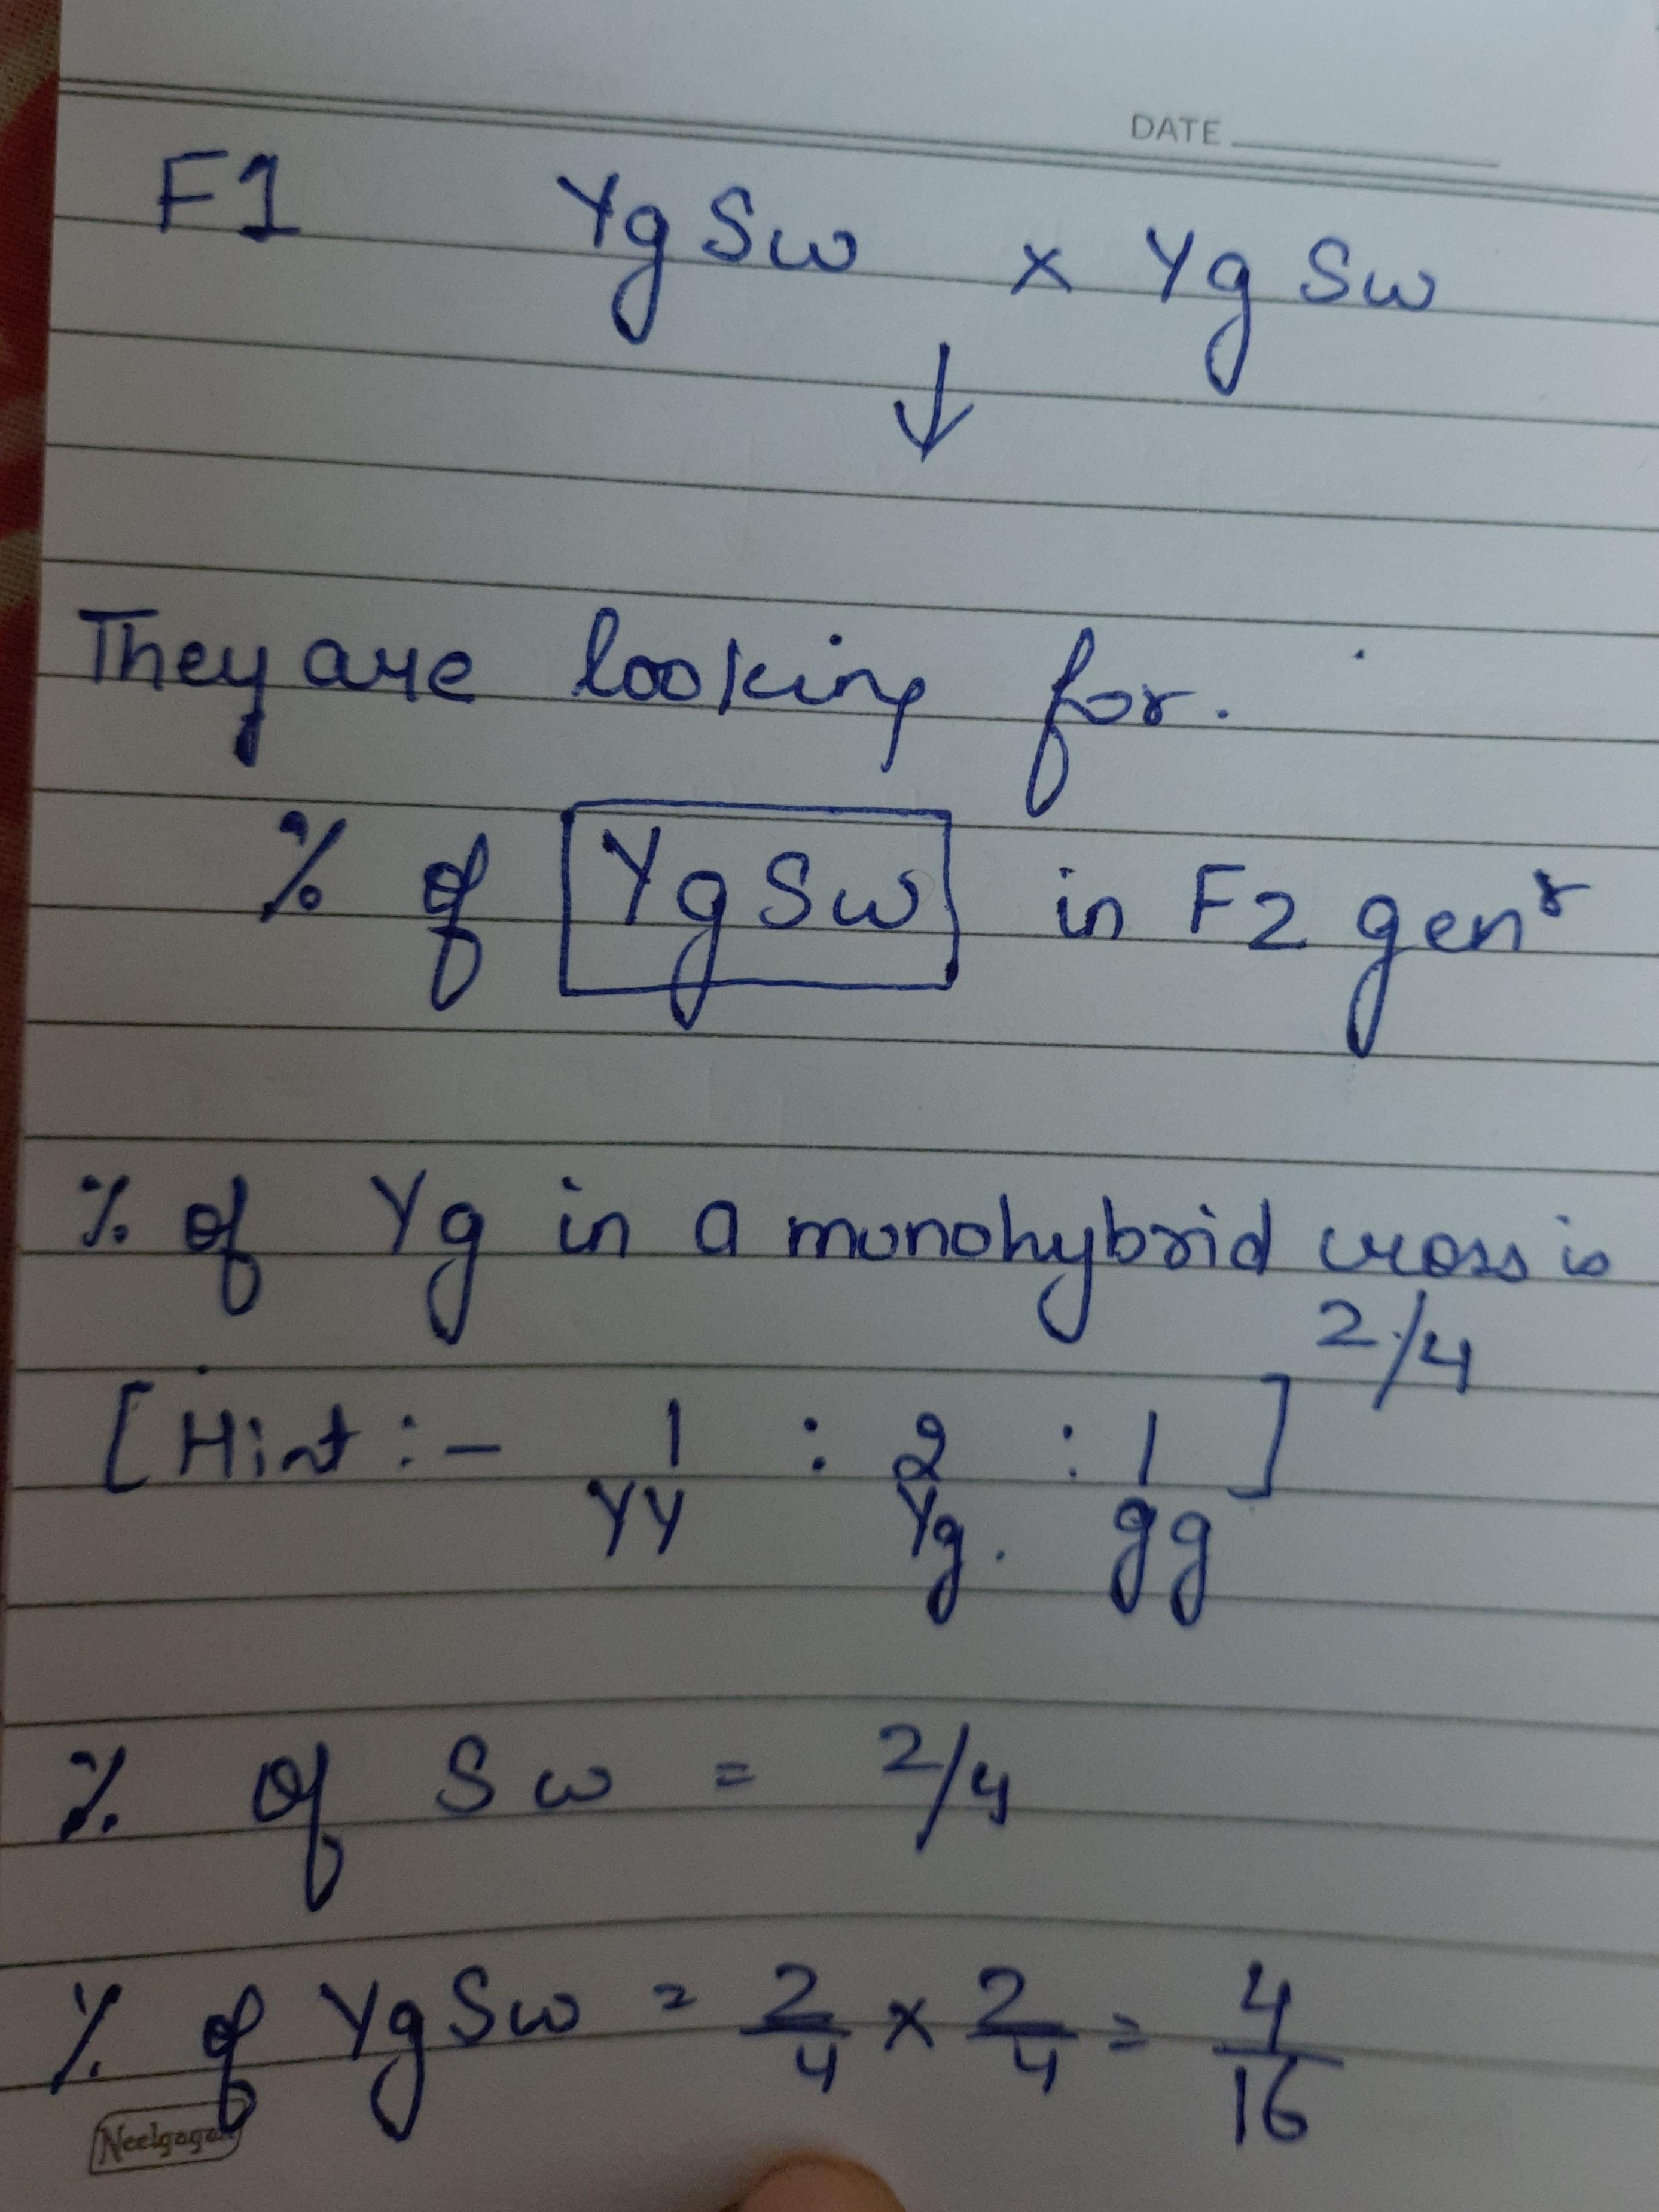 DATE
F1 YgSw x YgSw
↓
They are looking for.
% of YgSw in F2 genʳ
% of Yg in a monohybrid cross is
2/4
[Hint :- 1 : 2 : 1]
YY Yg. gg
% of Sw = 2/4
% of YgSw = 2/4 x 2/4 = 4/16
Neelgagan